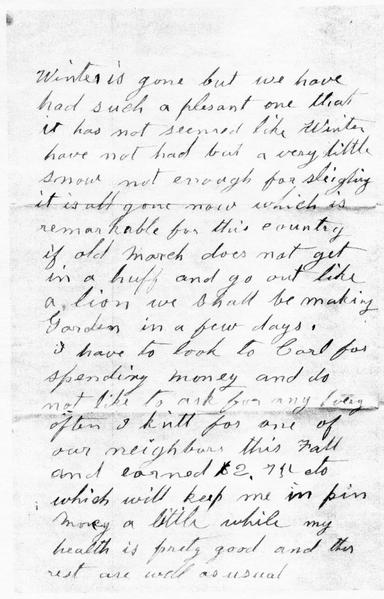 Winter is gone but we have
had such a plesant one that
it has not seemed like Winter
have not had but a very little
snow not enough for sleighing
it is all gone now which is
remarkable for this country
if old march does not get
in a huff and go out like
a lion we shall be making
Garden in a few days.
I have to look to Carl for
spending money and do
not like to ask for any very
often I knitt for one of
our neighbors this Fall
and earned $2, cts
which will keep me in pin
money a little while my
health is prety good and the
rest are well as usual